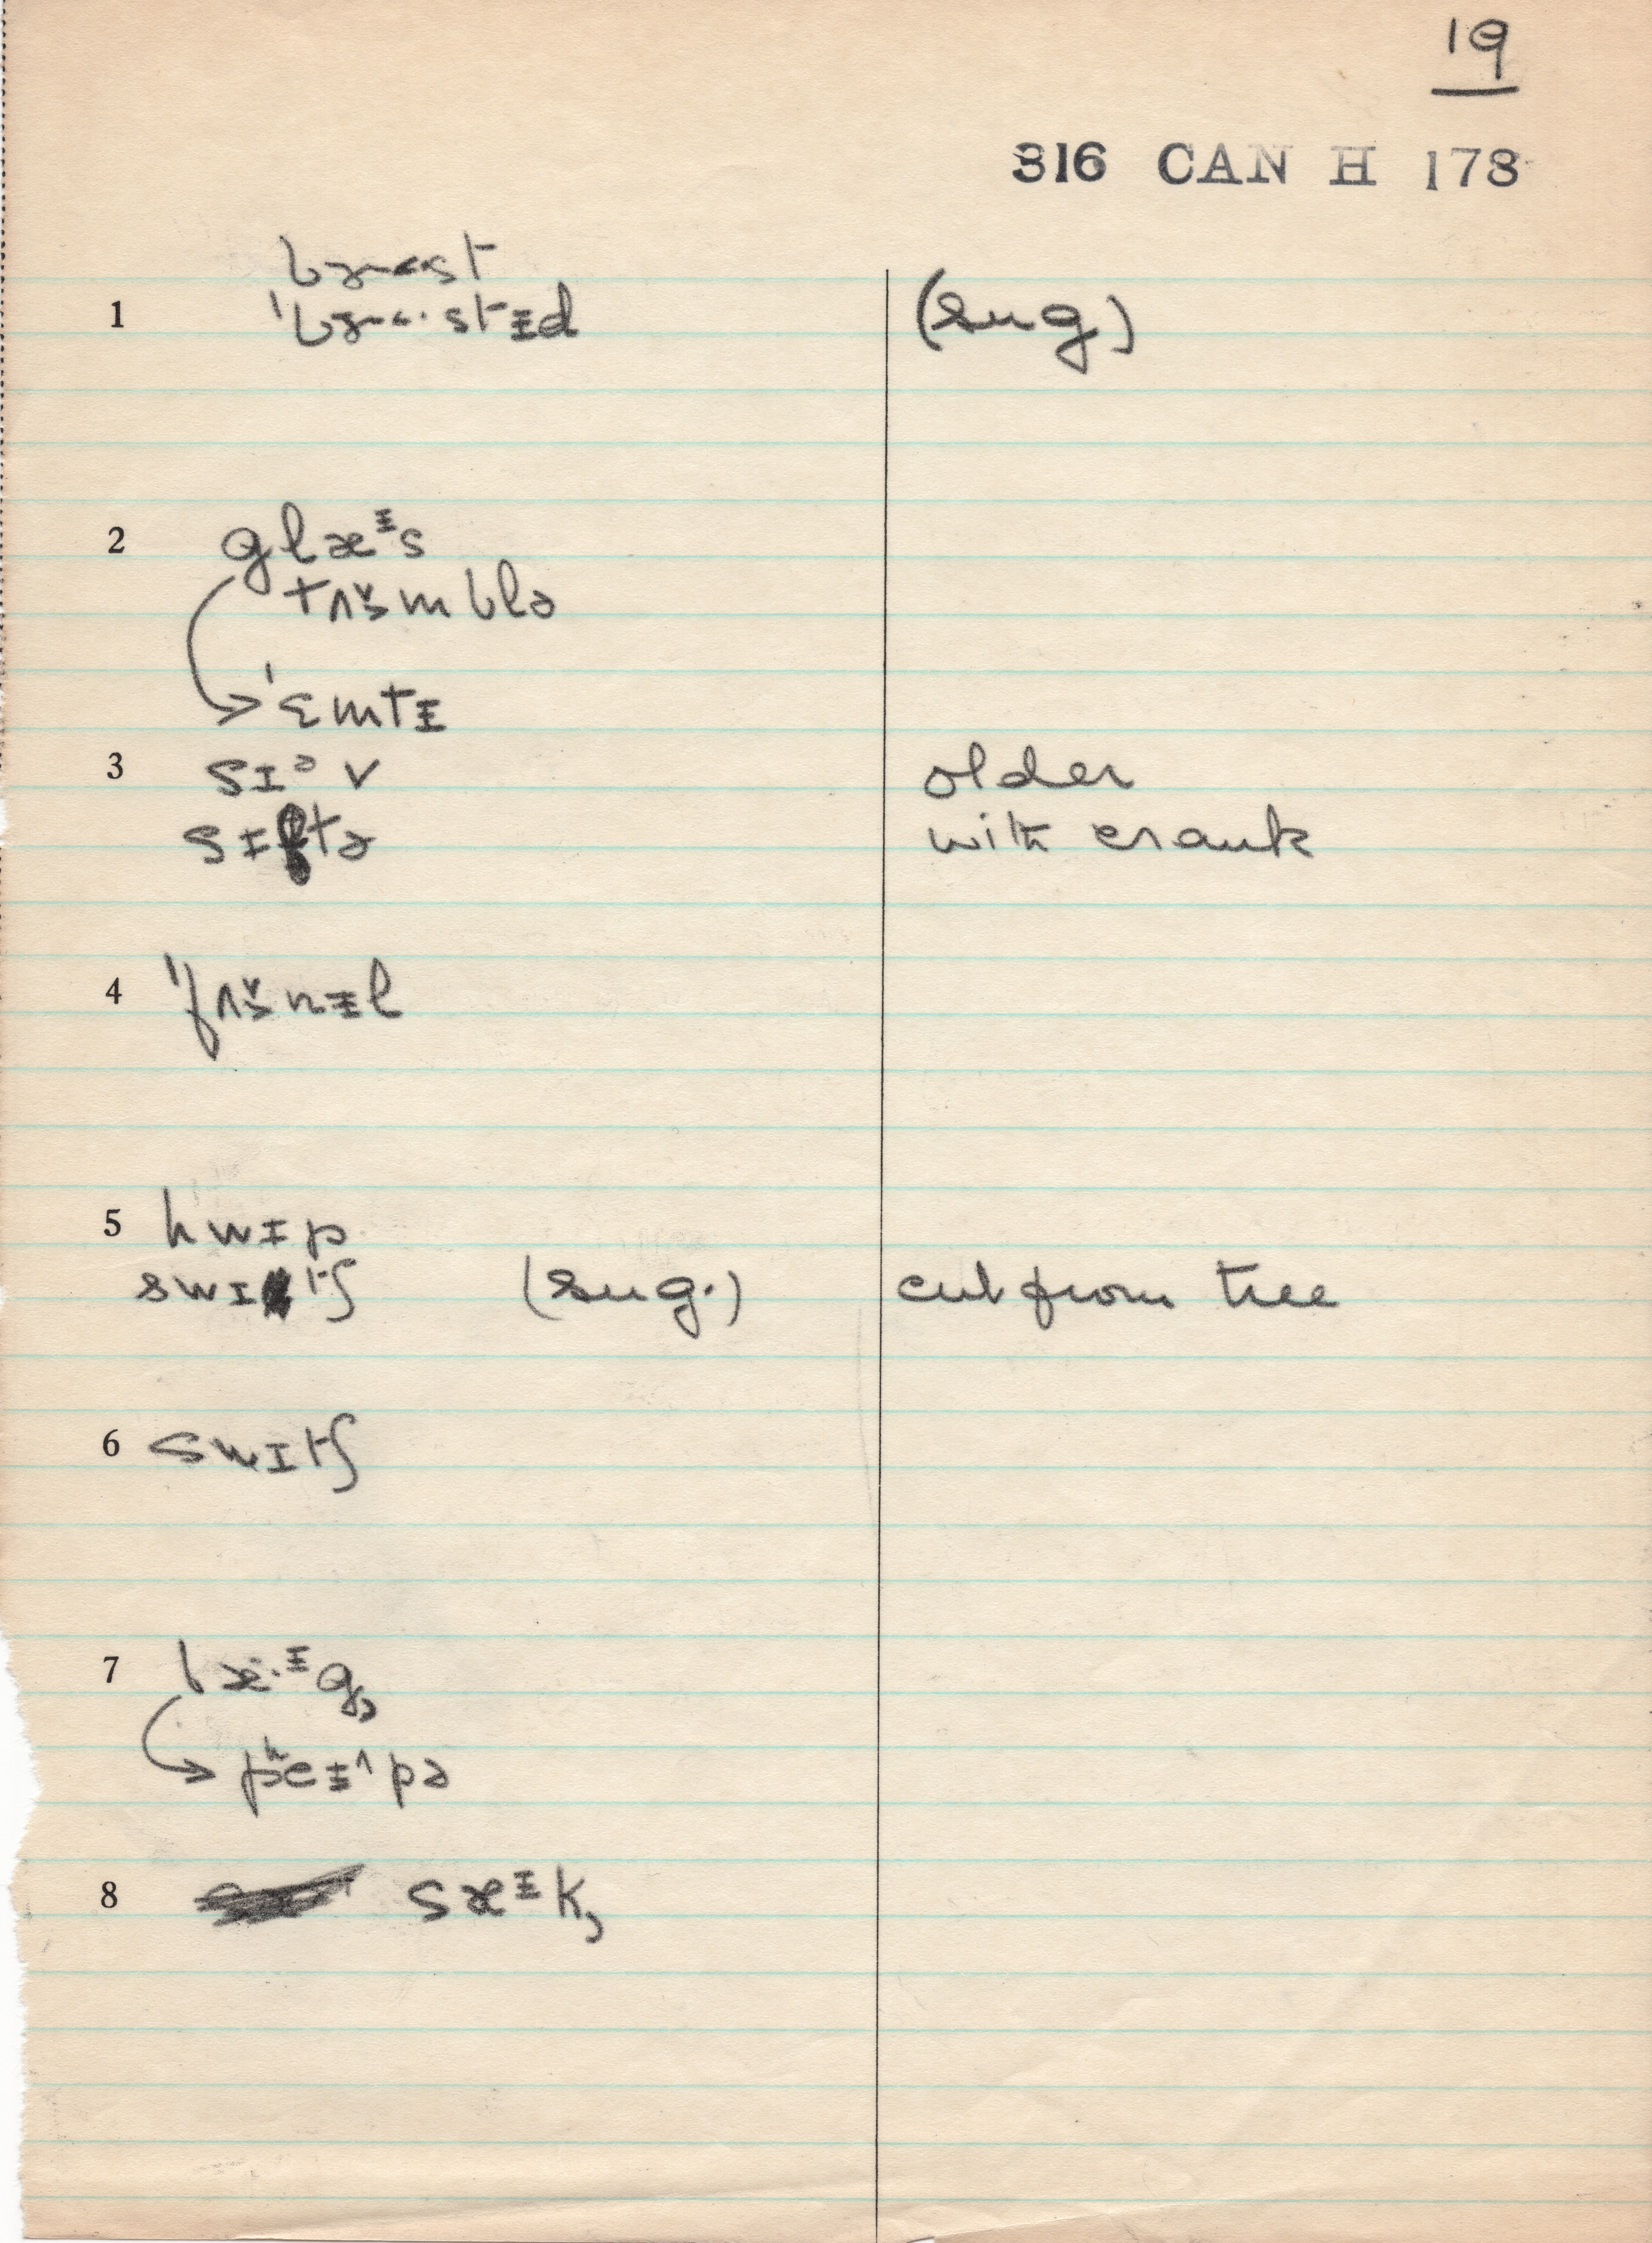 19
316 CAN H 178
bɝst
1 ˈbɝ·stᵻd (sug)
2 glæᵻs
tʌ̌mblə
ˈɛmtᵻ
3 sɪᵊv older
sɪftə with crank
4 ˈfʌ̌nᵻl
5 hwɪp
swɪtʃ (sug.) cut from tree
6 swɪtʃ
7 bæ·ᵻg̹
pʰeᵻ^pə
8 sæᵻk̹